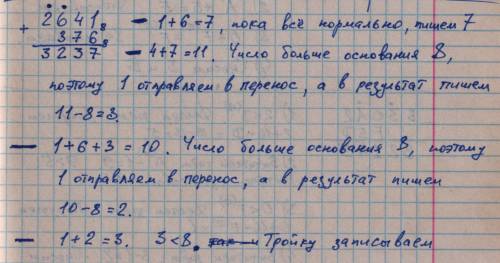 + 2641₈ — 1+6=7, пока всё нормально, пишем 7
376₈
3237 — 4+7=11. Число больше основания 8,
поэтому 1 отправляем в перенос, а в результат пишем
11-8=3.
— 1+6+3=10. Число больше основания 8, поэтому
1 отправляем в перенос, а в результат пишем
10-8=2.
— 1+2=3. 3<8. Тройку записываем